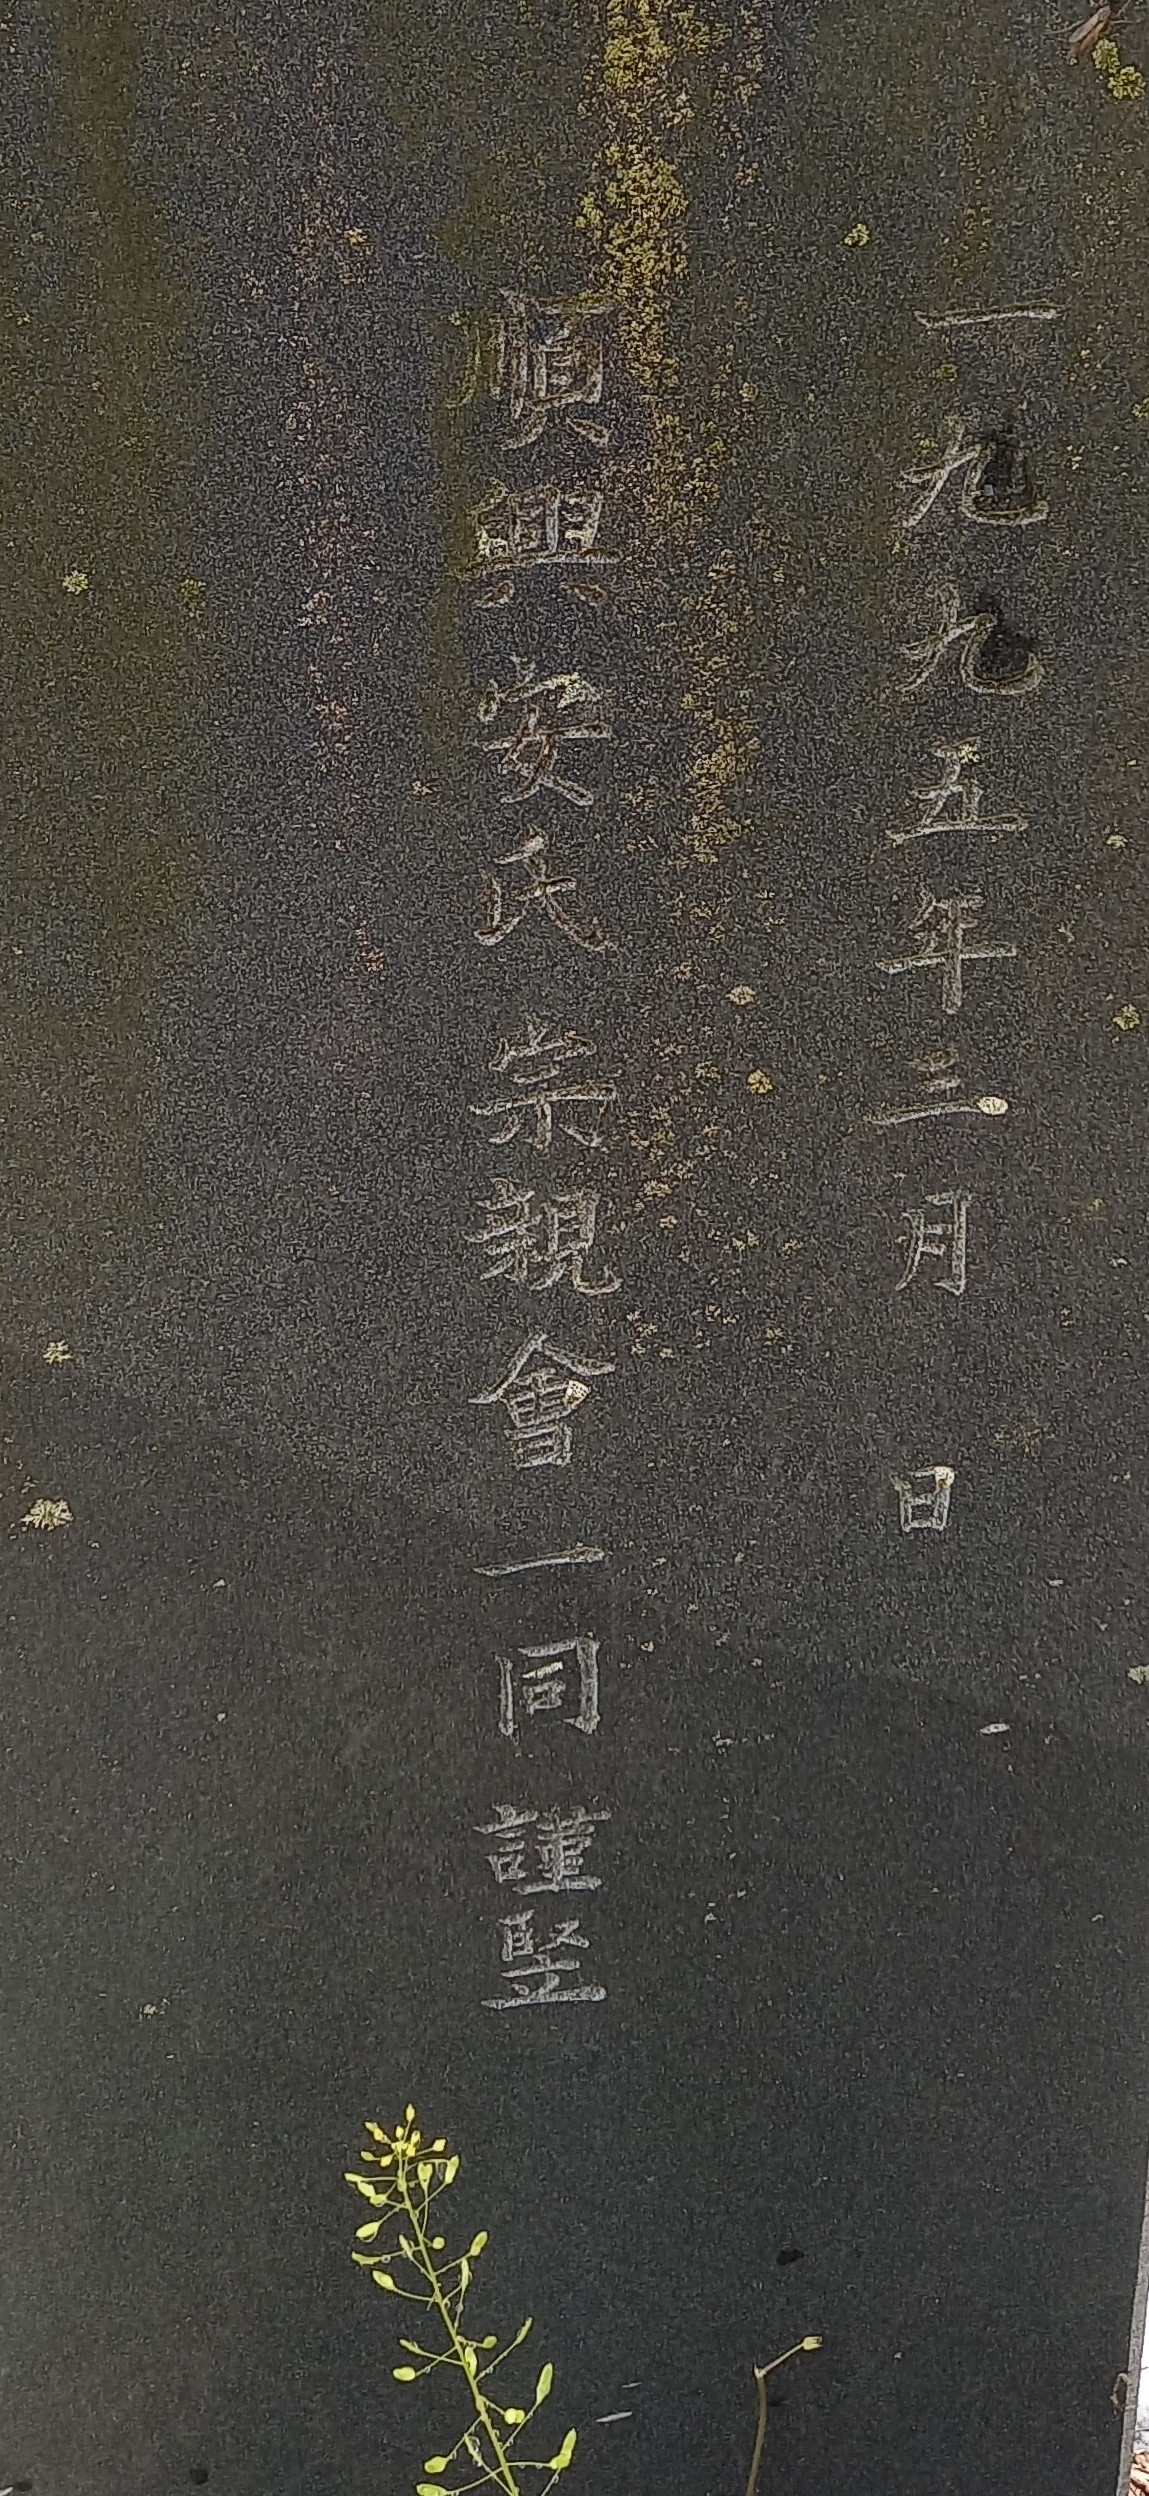 一九九五年三月 日
順興安氏宗親會一同謹竪